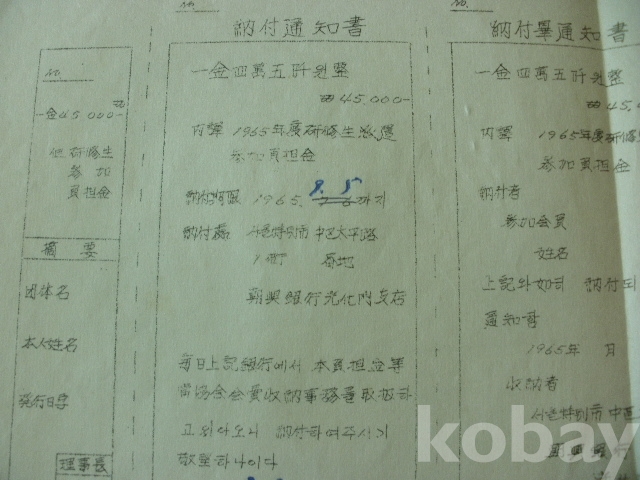 No.
一金45,000-
研修生
参加
負担金
摘要
団体名
本人姓名
発行日字
理事長
No.
納付通知書
一金四萬五阡원整
₩45,000-
内譯 1965年度研修生
参加負担金
納付期限 1965. 8. 5 까지
納付處 서울特別市 中区太平路
街 番地
朝興銀行光化門支店
毎日上記銀行에서 本負担金等
當協会会費收納事務를取扱하
고 있아오니 納付하여주시기
敬望하나이다
No.
納付畢通知書
一金四萬五阡원整
₩45,0
内譯 1965年度研
参加負担金
納付者
参加会員
姓名
上記와如히 納付되
通知함
1965年 月
收納者
서울特別市 中区
朝興銀行
kobay